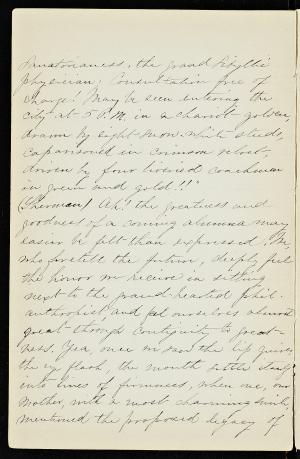 the grand Idyllic
physician! Consultation free of
charge! May be seen entering the
city at 5 P.M. in a chariot golden,
drawn by eight snow-white steeds,
caparisoned in crimson velvet,
driven by four liveried coachmen
in green and gold!!"
(Sherman) Ah! the greatness and
goodness of a coming alumna may
easier be felt than expressed. We,
who foretell the future, deeply feel
the honor we receive in sitting
next to the grand-hearted phil-
anthropist, and feel ourselves almost
great through contiguity to great-
ness. Yea, once we saw the lip quiver,
the eye flash, the mouth settle itself
into lines of firmness, when one, our
Mother, with a most charming smile,
mentioned the proposed legacy of